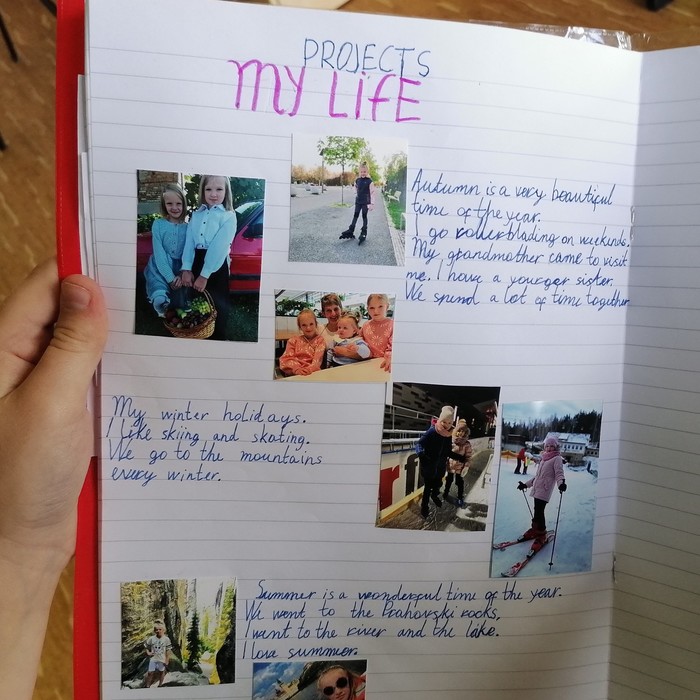 PROJECTS
MY LiFE
Autumn is a very beautiful
time of the year.
I go rollerblading on weekends.
My grandmother came to visit
me. I have a younger sister.
We spend a lot of time together
My winter holidays.
I like skiing and skating.
We go to the mountains
every winter.
Summer is a wonderful time of the year.
We went to the Prahovski rocks.
I went to the river and the lake.
I love summer.